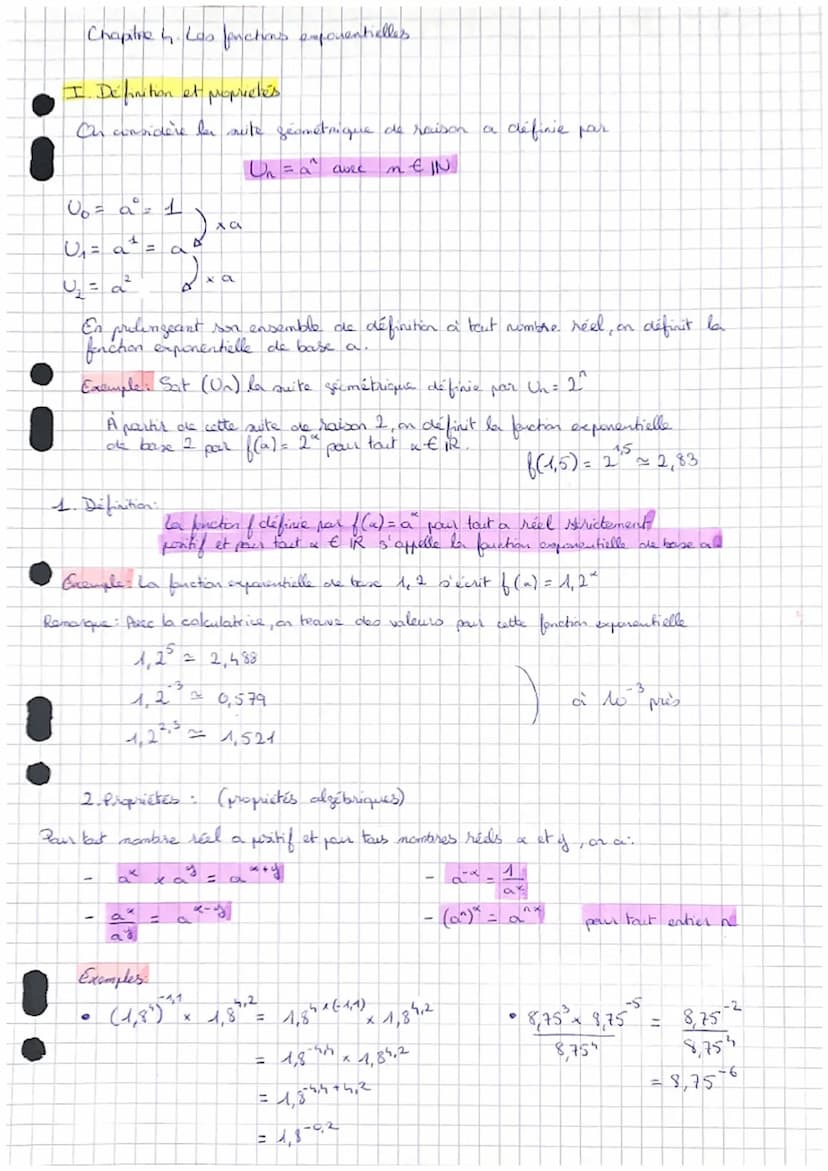 Chapitre 4. Les fonctions exponentielles
I. Définition et propriétés
On considère la suite géométrique de raison a définie par
Un = aⁿ avec n ∈ ℕ
U₀ = a⁰ = 1
× a
U₁ = a¹ = a
× a
U₂ = a²
En prolongeant son ensemble de définition à tout nombre réel, on définit la
fonction exponentielle de base a.
Exemple: Soit (Un) la suite géométrique définie par Un = 2ⁿ
À partir de cette suite de raison 2, on définit la fonction exponentielle
de base 2 par f(x) = 2ˣ pour tout x ∈ ℝ.
f(1,5) = 2^1,5 ≃ 2,83
1. Définition:
La fonction f définie par f(x) = aˣ pour tout a réel strictement
positif et pour tout x ∈ ℝ s'appelle la fonction exponentielle de base a
Exemple: La fonction exponentielle de base 1,2 s'écrit f(x) = 1,2ˣ
Remarque: Avec la calculatrice, on trouve des valeurs pour cette fonction exponentielle
1,2⁵ ≃ 2,488
1,2⁻³ ≃ 0,579
à 10⁻³ près
1,2^2,3 ≃ 1,521
2. Propriétés : (propriétés algébriques)
Pour tout nombre réel a positif et pour tous nombres réels x et y, on a:
- aˣ × aʸ = a^x+y
- a^-x = 1/aˣ
- aˣ/aʸ = a^x-y
- (aⁿ)ˣ = a^nx pour tout entier n
Exemples:
• (1,8⁴)^-1,1 × 1,8^4,2 = 1,8^4×(-1,1) × 1,8^4,2
= 1,8^-4,4 × 1,8^4,2
= 1,8^-4,4+4,2
= 1,8^-0,2
• 8,75³ × 8,75⁻⁵ / 8,75⁴ = 8,75⁻² / 8,75⁴
= 8,75⁻⁶